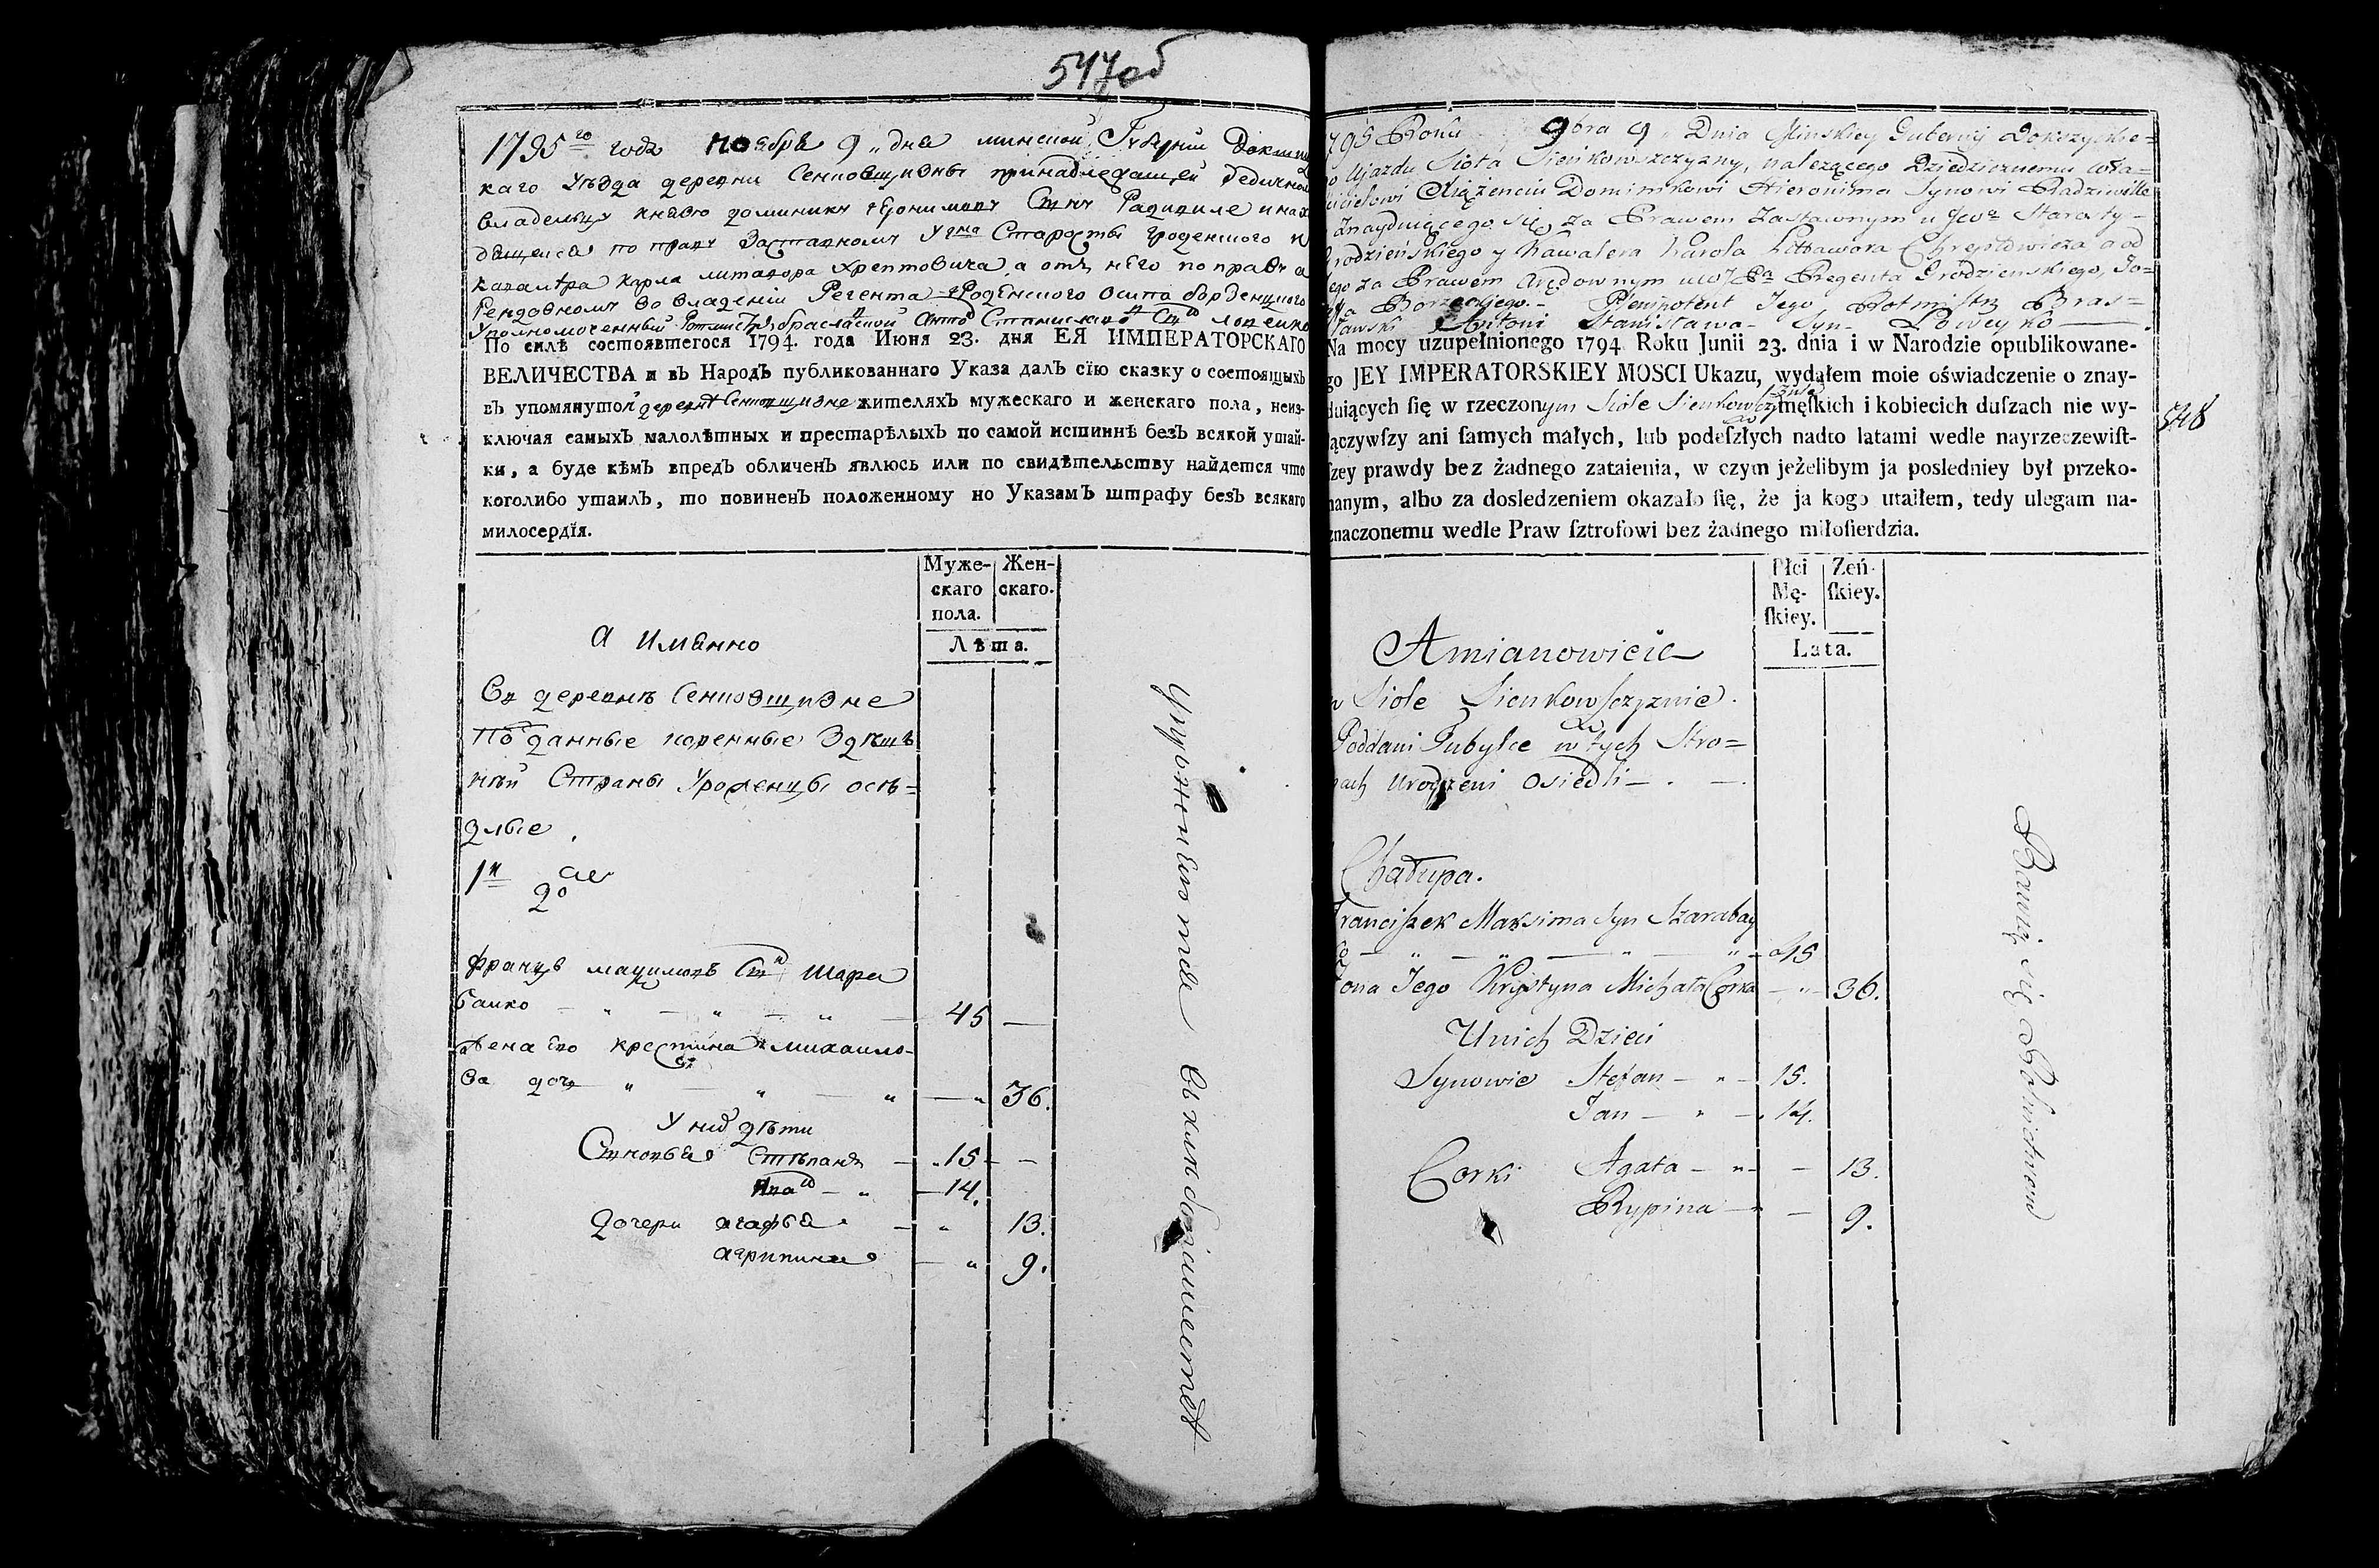 547об
1795го года ноября 9 дня минской Губернии Докшиц
каго уезда деревни Сенковщизны принадлежащей Ѳедичному
владельцу князю доминику Героним Сыну Радивиле а нахо
дящейся по праву Заставному у Старосты гроденского и
кавалера Карла литавора хрептовича, а отъ него по праву а
рендовному во владении Регента Гроденского Осипа
уполномоченный Ротмистръ браславской Антон Станиславов Сын
По силѣ состоявшегося 1794. года Июня 23. дня ЕЯ ИМПЕРАТОРСКАГО
ВЕЛИЧЕСТВА и въ Народъ публикованнаго Указа далъ сїю сказку о состоящыхъ
въ упомянутой деревне Сенковщизне жителяхъ мужескаго и женскаго пола, неиз-
ключая самыхъ малолѣтныхъ и престарѣлыхъ по самой истиннѣ безъ всякой утай-
ки, а буде кѣмъ впредъ обличенъ явлюсь или по свидѣтельству найдется что
коголибо утаилъ, то повиненъ положенному но Указамъ штрафу безъ всякаго
милосердїя.
Муже-
скаго
пола.
Жен-
скаго.
Лѣта.
а Имянно
Въ деревнѣ Сенковщизне
Подданные коренные Здѣшъ
нѣй Страны Уроженцы осѣ=
длые
1я
Францъ мацимовъ Сын Шара
байко 45
Жена Его крестина Михаило-
ва доч 36.
У них дѣти
Сыновья Стѣпанъ 15
Иван 14.
Дочери агафья 13.
агрипина 9.
Упражнение Сѣютъ
1795 Roku 9bra 9 Dnia Minskiey Gubernij Dokszyckie=
go Ujazdu Sioła Sieńkowszczyzny, należącego Dziedzicznemu Wła=
ścicielowi Xiążęnciu Dominikowi Hieronima Synowi Radziwiłłe
Znayduiącego się za Prawem Zastawnym u Starosty-
Grodzieńskiego y Kawalera Karola Littawora Chreptowicza a od
Jego za Prawem Arędownym Regenta Grodzieńskiego, Jo=
Plenipotent Jego Rotmistrz Bras=
ławski Antoni Stanisława Syn Łoweyko
Na mocy uzupełnionego 1794 Roku Junii 23. dnia i w Narodzie opublikowane-
go JEY IMPERATORSKIEY MOSCI Ukazu, wydałem moie oświadczenie o znay-
duiących ſię w rzeczonym Siole Sieńkowszczyznie męſkich i kobiecich duſzach nie wy-
łączywſzy ani ſamych małych, lub podeſzłych nadto latami wedle nayrzeczewiſt-
ſzey prawdy bez żadnego zataienia, w czym jeżelibym ja posledniey był przeko-
nanym, albo za dosledzeniem okazało ſię, że ja kogo utaiłem, tedy ulegam na-
znaczonemu wedle Praw ſztrofowi bez żadnego miłoſierdzia.
548
Płci
Mę-
ſkiey.
Zeń-
ſkiey.
Lata.
A mianowicie
w Siole Sieńkowszczyznie
Poddani Tubylce w tych Stro=
nach Urodzeni Osiedli
Chałupa.
Franciszek Maksima Syn Szarabay
ko 45
Żona Jego Krystyna Michała Corka 36.
U nich Dzieci
Synowie Stefan 15.
Jan 14.
Corki Agata 13.
Rypina 9.
Bawią się Rolnictwem